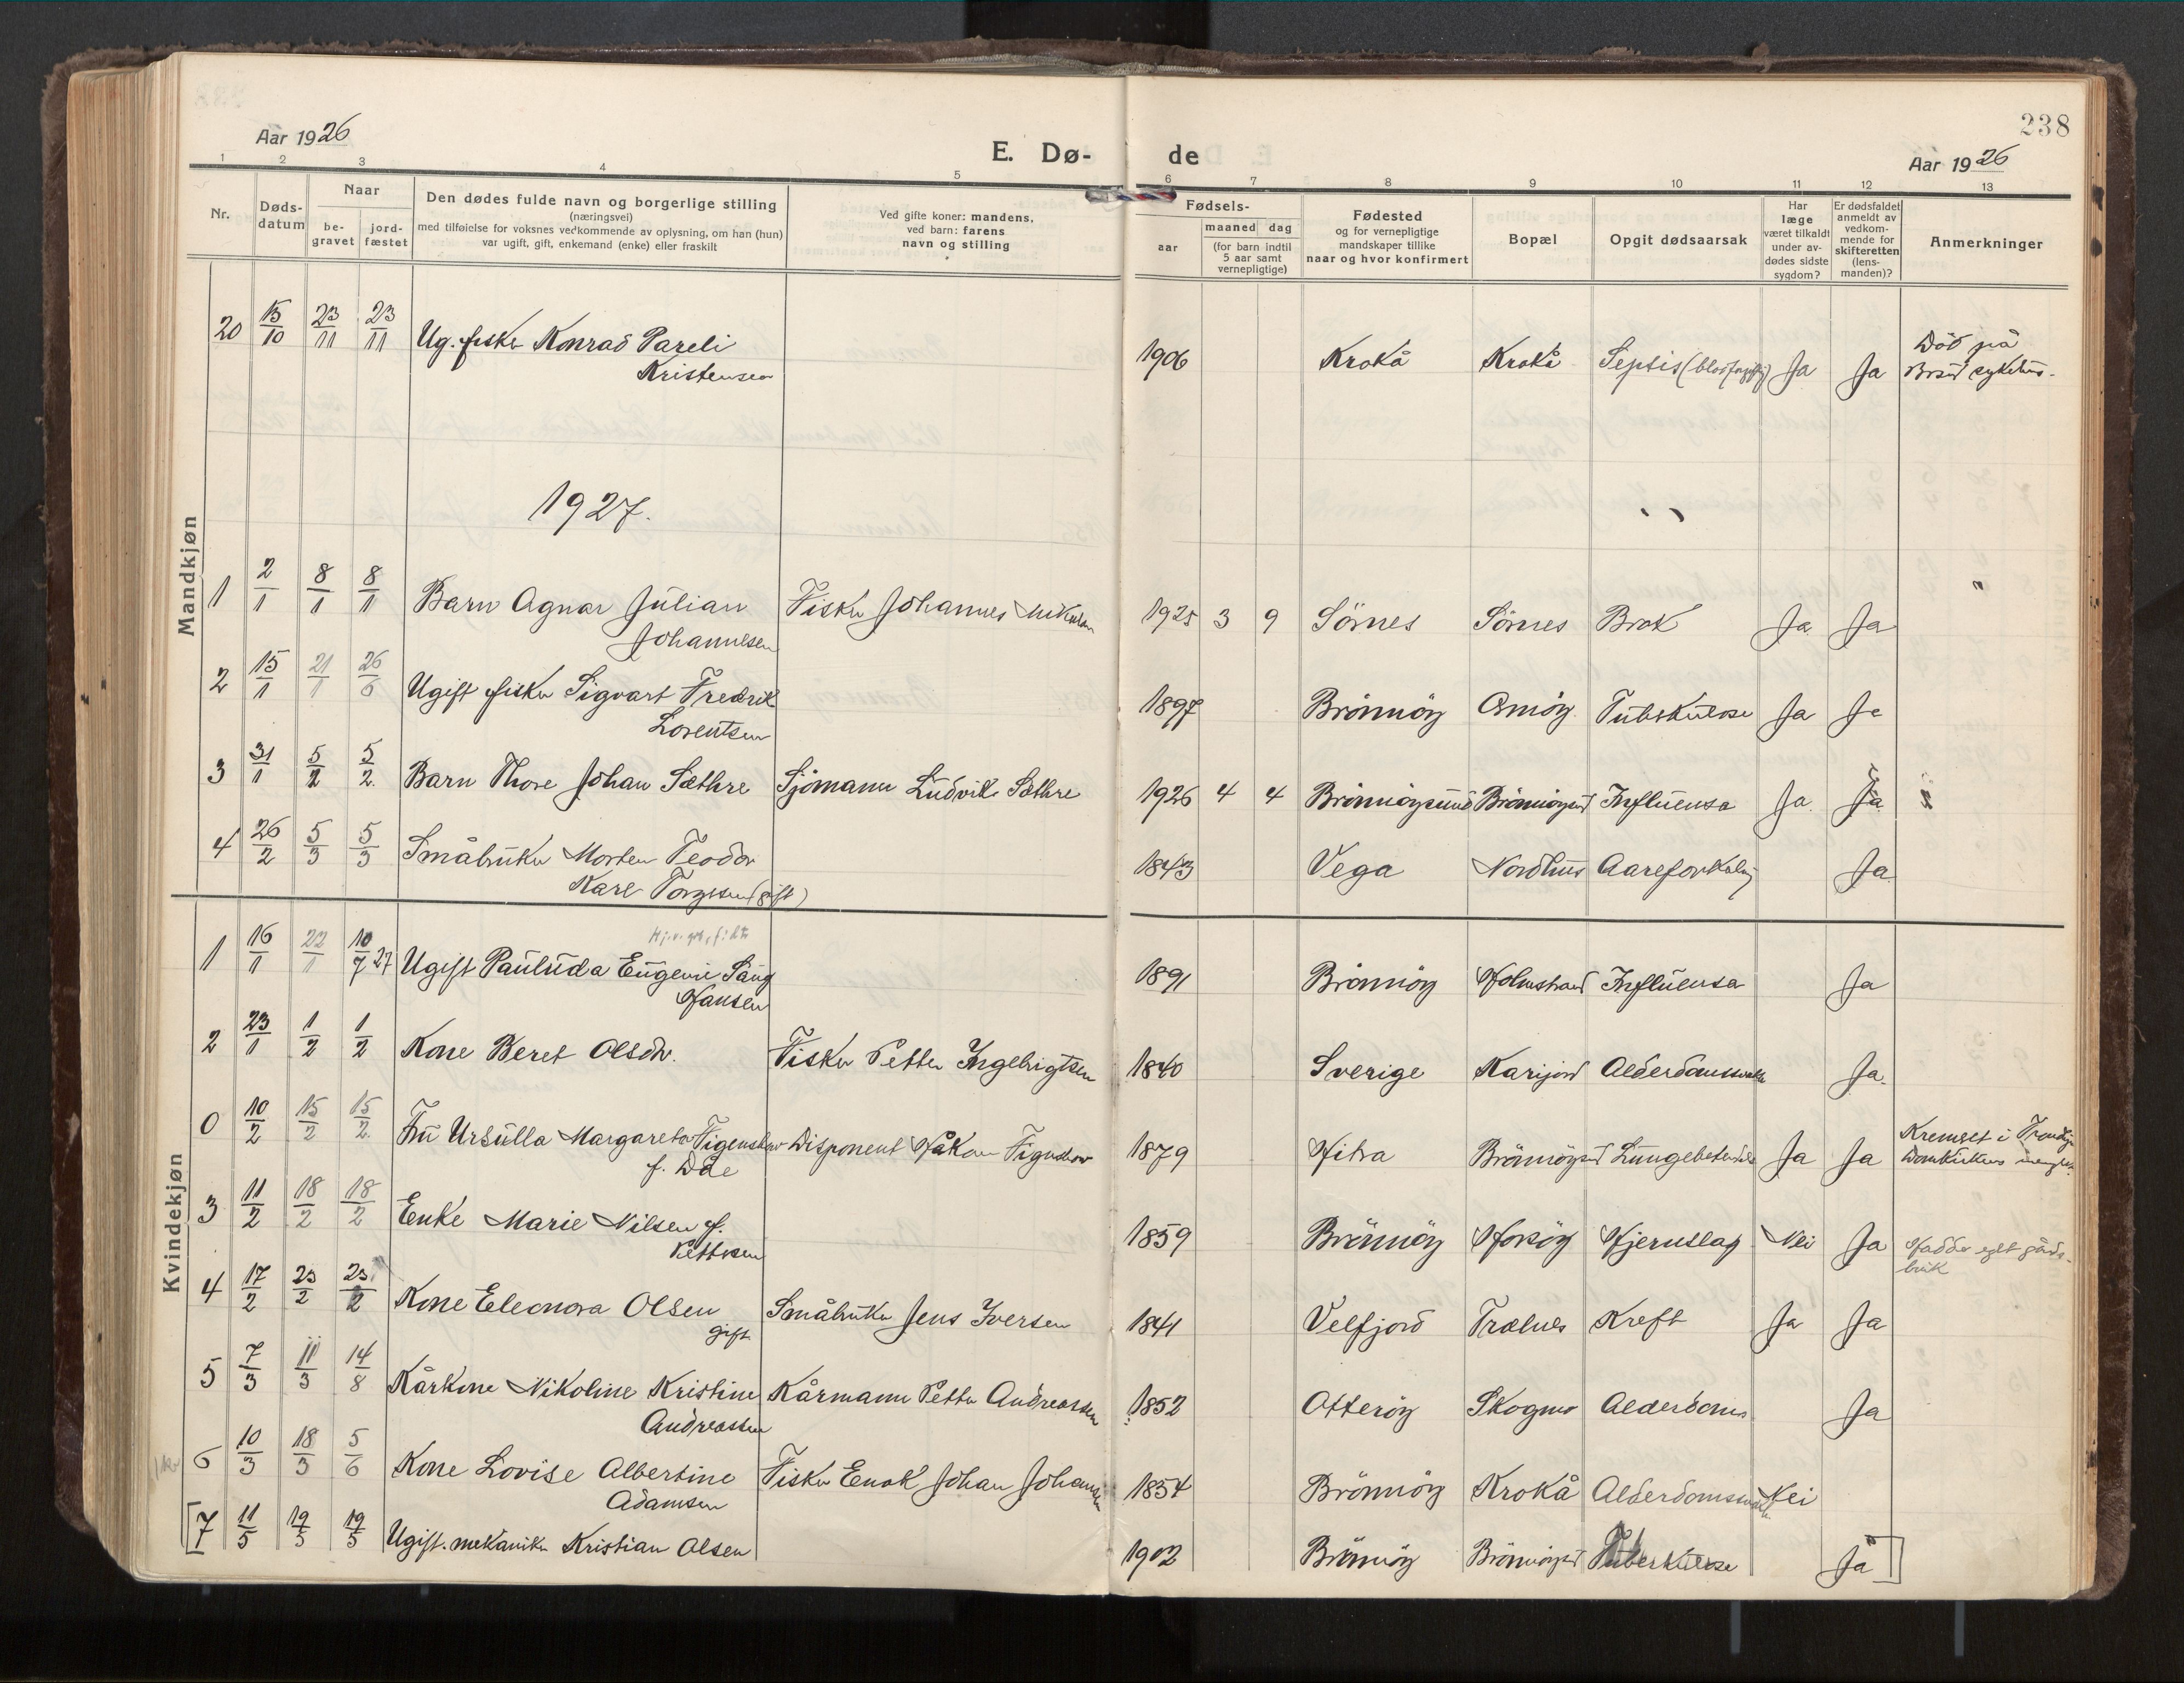 238
Aar 1926
E. Dø-
de
Aar 1926
1 2 3 4 5 6 7 8 9 10 11 12 13
Nr.
Døds-
datum
Naar
be-
gravet
jord-
fæstet
Den dødes fulde navn og borgerlige stilling
(næringsvei)
med tilføielse for voksnes vedkommende av oplysning, om han (hun)
var ugift, gift, enkemand (enke) eller fraskilt
Ved gifte koner: mandens,
ved barn: farens
navn og stilling
Fødsels-
aar
maaned dag
(for barn indtil
5 aar samt
vernepligtige)
Fødested
og for vernepligtige
mandskaper tillike
naar og hvor konfirmert
Bopæl
Opgit dødsaarsak
Har
læge
været tilkaldt
under av-
dødes sidste
sygdom?
Er dødsfaldet
anmeldt av
vedkom-
mende for
skifteretten
(lens-
manden)?
Anmerkninger
Mandkjøn
20 15/10 23/11 23/11 Ug. fisker Konrad Pareli 1906 Krokå Krokå Septis Ja Ja Död på
Kristensen sykehus.
1927.
1 2/1 8/1 8/1 Barn Agnar Julian Fisker Johannes 1925 3 9 Sörnes Sörnes Ja Ja
Johannesen
2 15/1 21/1 26/6 Ugift fisker Sigvart Fredrik 1897 Brönnöy Tuberkulose Ja Ja
Lorentsen
3 31/1 5/2 5/2 Barn Thore Johan Sæthre Sjömann Ludvik Sæthre 1926 4 4 Brönnöysund Brönnöysund Influensa Ja Ja
4 26/2 5/3 5/3 Småbruker Morten Teodor 1843 Vega Nordhus Aareforkalkn. Ja
Karl (gift)
Kvindekjøn
1 16/1 22/1 10/7 27 Ugift Eugenie 1891 Brönnöy Holmstrand Influensa Ja
Hansen
2 23/1 1/2 1/2 Kone Beret Olsdtr. Fisker Petter Ingebrigtsen 1840 Sverige Karijord Ja
0 10/2 15/2 15/2 Fru Ursulla Margareta Figenschow Disponent Håkon Figenschow 1879 Hitra Brönnöysund Lungebetendelse Ja Ja Kremert i
f. Dåe
3 11/2 18/2 18/2 Enke Marie Nilsen f. 1859 Brönnöy Hjerneslag Nei Ja Hadde eget gårds-
Pettersen bruk
4 17/2 23/2 23/2 Kone Eleonora Olsen Småbruker Jens Iversen 1841 Velfjord Trælnes Kreft Ja Ja
gift
5 7/3 11/3 14/8 Kårkone Nikoline Kristine Kårmann Petter Andreassen 1852 Otteröy Skogmo Alderdoms Ja
Andreassen
6 10/3 18/3 5/6 Kone Lovise Albertine Fisker Enok Johan Johansen 1854 Brönnöy Krokå Nei
Adamsen
[7 11/5 19/5 19/5 Ugift. mekaniker Kristian Olsen 1902 Brönnöy Brönnöysund Tuberkulose Ja]